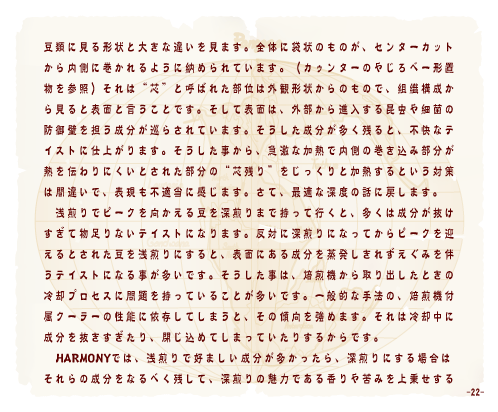 豆類に見る形状と大きな違いを見ます。全体に袋状のものが、センターカット
から内側に巻かれるように納められています。（カウンターのやじろべー形置
物を参照）それは“芯”と呼ばれた部位は外観形状からのもので、組織構成か
ら見ると表面と言うことです。そして表面は、外部から進入する昆虫や細菌の
防御壁を担う成分が巡らされています。そうした成分が多く残ると、不快なテ
イストに仕上がります。そうした事から、急激な加熱で内側の巻き込み部分が
熱を伝わりにくいとされた部分の“芯残り”をじっくりと加熱するという対策
は間違いで、表現も不適当に感じます。さて、最適な深度の話に戻します。
浅煎りでピークを向かえる豆を深煎りまで持って行くと、多くは成分が抜け
すぎて物足りないテイストになります。反対に深煎りになってからピークを迎
えるとされた豆を浅煎りにすると、表面にある成分を蒸発しきれずえぐみを伴
うテイストになる事が多いです。そうした事は、焙煎機から取り出したときの
冷却プロセスに問題を持っていることが多いです。一般的な手法の、焙煎機付
属クーラーの性能に依存してしまうと、その傾向を強めます。それは冷却中に
成分を抜きすぎたり、閉じ込めてしまっていたりするからです。
HARMONYでは、浅煎りで好ましい成分が多かったら、深煎りにする場合は
それらの成分をなるべく残して、深煎りの魅力である香りや苦みを上乗せする
-22-